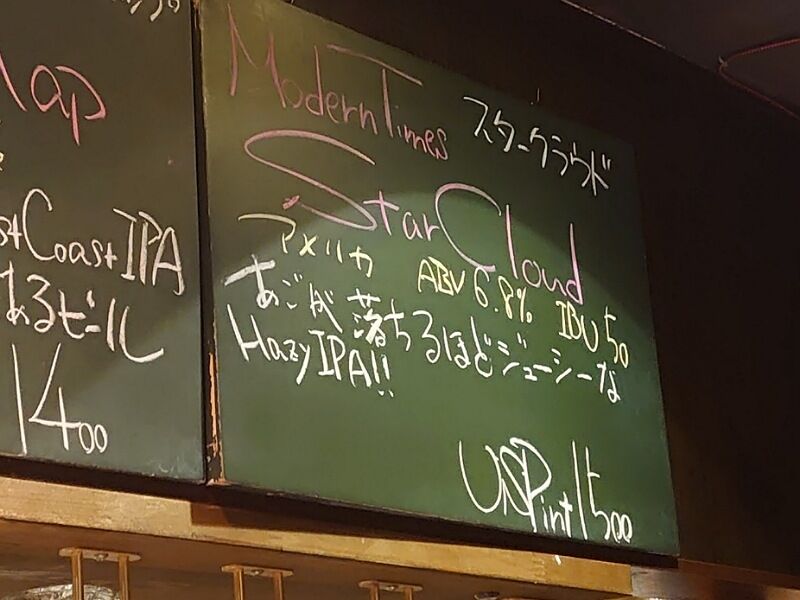 Map
st Coast IPA
あるビール
1400
Modern Times
スタークラウド
Star Cloud
アメリカ
ABV 6.8% IBU 50
あごが落ちるほどジューシーな
Hazy IPA!!
US Pint 1500